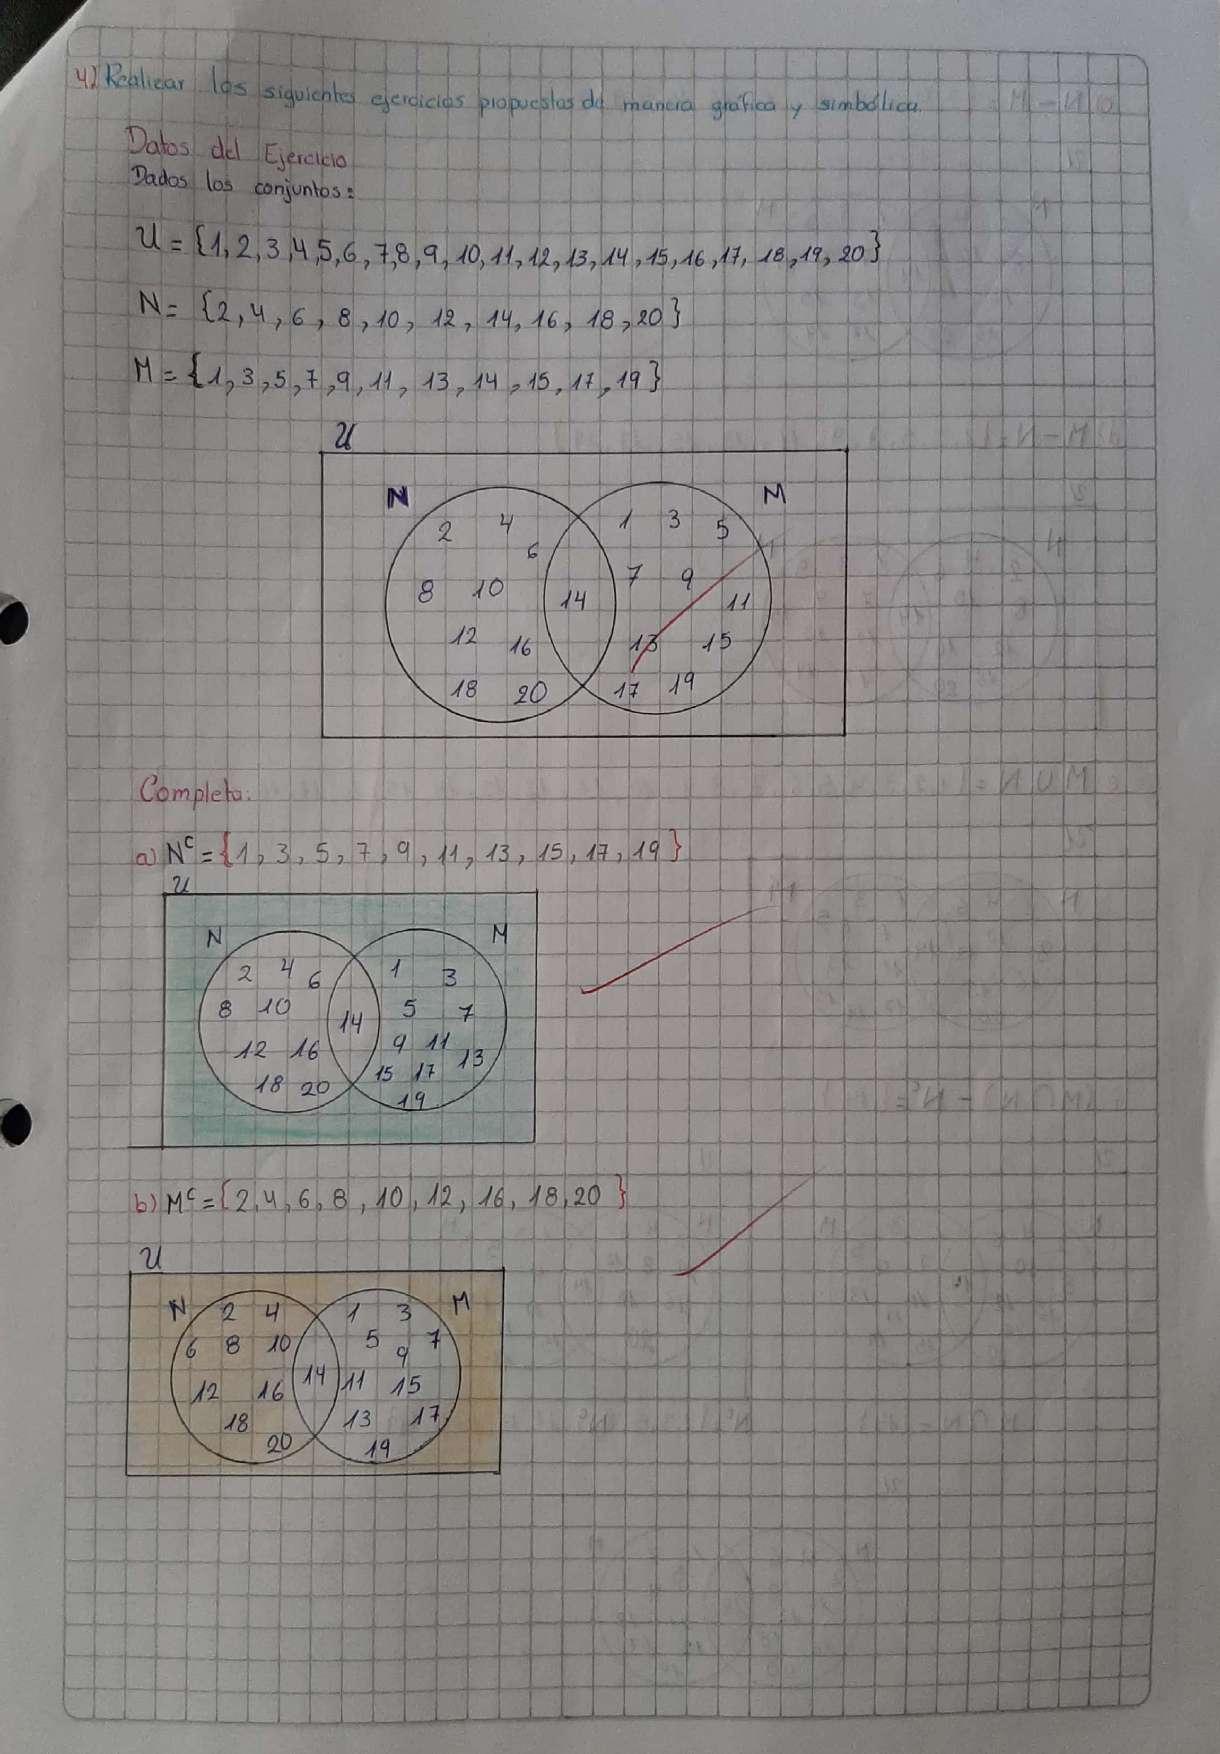 4) Realizar los siguientes ejercicios propuestos de manera gráfica y simbólica.
Datos del Ejercicio
Dados los conjuntos:
U = {1, 2, 3, 4, 5, 6, 7, 8, 9, 10, 11, 12, 13, 14, 15, 16, 17, 18, 19, 20}
N = {2, 4, 6, 8, 10, 12, 14, 16, 18, 20}
M = {1, 3, 5, 7, 9, 11, 13, 14, 15, 17, 19}
U
N M
2 4 1 3 5
6
8 10 14 7 9 11
12 16 13 15
18 20 17 19
Completo:
a) Nᶜ = {1, 3, 5, 7, 9, 11, 13, 15, 17, 19}
U
N M
2 4 6 1 3
8 10 14 5 7
12 16 9 11 13
18 20 15 17
19
b) Mᶜ = {2, 4, 6, 8, 10, 12, 16, 18, 20}
U
N 2 4 1 3 M
6 8 10 5 9 7
12 16 14 11 15
18 13 17
20 19